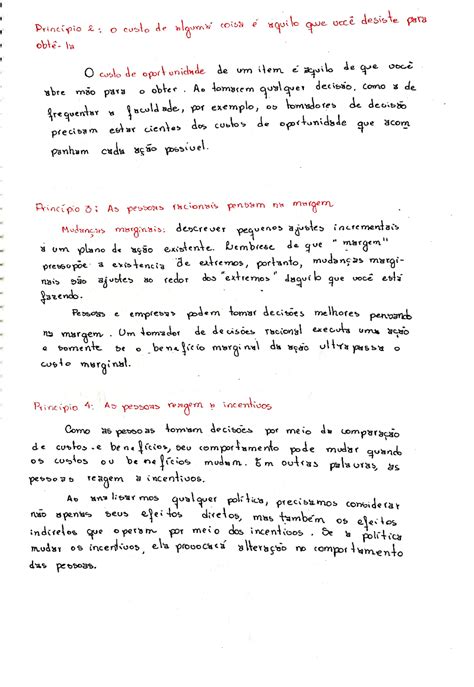 Princípio 2: o custo de alguma coisa é aquilo que você desiste para
obtê-la
O custo de oportunidade de um item é aquilo de que você
abre mão para o obter. Ao tomarem qualquer decisão, como a de
frequentar a faculdade, por exemplo, os tomadores de decisão
precisam estar cientes dos custos de oportunidade que acom
panham cada ação possível.
Princípio 3: As pessoas racionais pensam na margem
Mudanças marginais: descrever pequenos ajustes incrementais
a um plano de ação existente. Lembrese de que "margem"
pressupõe a existencia de extremos, portanto, mudanças margi-
nais são ajustes ao redor dos "extremos" daquilo que você está
fazendo.
Pessoas e empresas podem tomar decisões melhores pensando
na margem. Um tomador de decisões racional executa uma ação
e somente se o benefício marginal da ação ultrapassa o
custo marginal.
Princípio 4: As pessoas reagem a incentivos
Como as pessoas tomam decisões por meio da comparação
de custos e benefícios, seu comportamento pode mudar quando
os custos ou benefícios mudam. Em outras palavras, as
pessoas reagem a incentivos.
Ao analisarmos qualquer política, precisamos considerar
não apenas seus efeitos diretos, mas também os efeitos
indiretos que operam por meio dos incentivos. Se a política
mudar os incentivos, ela provocará alteração no comportamento
das pessoas.